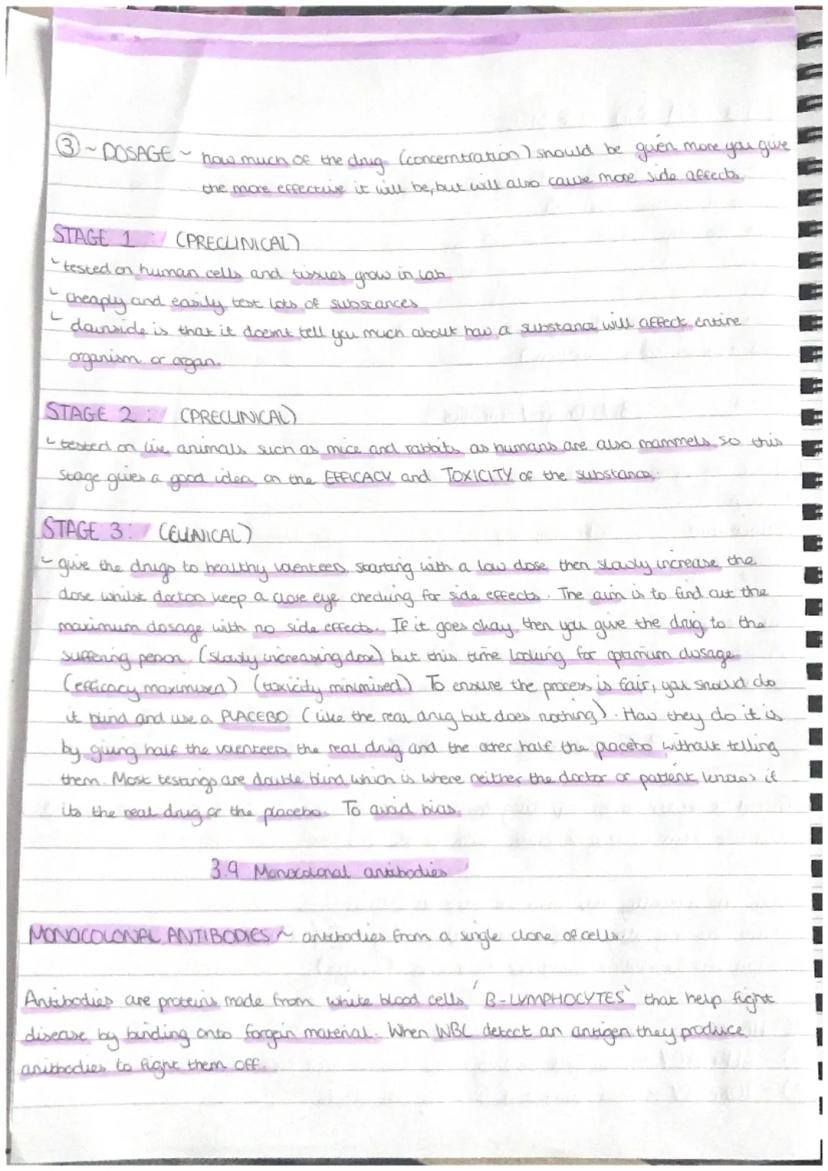 ③ ~ DOSAGE ~ how much of the drug (concerntration) should be given more you give
the more effective it will be, but will also cause more side affects.
STAGE 1 : (PRECLINICAL)
tested on human cells and tissues grow in lab
cheaply and easily test lots of substances
downside is that it doesnt tell you much about how a substance will affect entire
organism or organ.
STAGE 2 : (PRECLINICAL)
tested on live animals such as mice and rabbits as humans are also mammels so this
stage gives a good idea on the EFFICACY and TOXICITY of the substance.
STAGE 3 : (CLINICAL)
give the drugs to healthy volenteers starting with a low dose then slowly increase the
dose whilst doctors keep a close eye checking for side effects. The aim is to find out the
maximum dosage with no side effects. If it goes okay then you give the drug to the
suffering person (slowly increasing dose) but this time looking for optimum dosage
(efficacy maximised) (toxicity minimised) To ensure the process is fair, you should do
it blind and use a PLACEBO (like the real drug but does nothing). How they do it is
by giving half the volenteers the real drug and the other half the placebo without telling
them. Most testings are double blind which is where neither the doctor or patient knows if
its the real drug or the placebo. To avoid bias.
3.9 Monocolonal antibodies
MONOCOLONAL ANTIBODIES ~ antibodies from a single clone of cells
Antibodies are proteins made from white blood cells 'B-LYMPHOCYTES' that help fight
disease by binding onto forgein material. When WBC detect an antigen they produce
antibodies to fight them off.